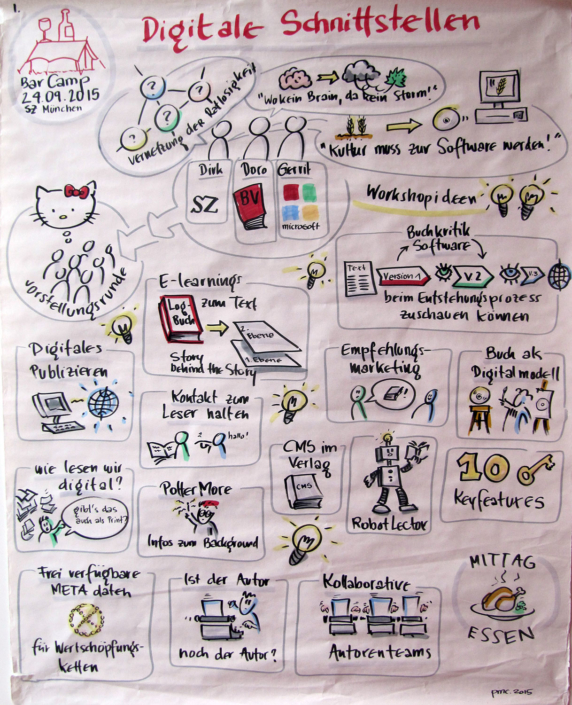 1.
Digitale Schnittstellen
BarCamp
24.09.2015
SZ München
? ? ? ? ?
Vernetzung der Ratlosigkeit
"Wo kein Brain, da kein Storm!"
"Kultur muss zur Software werden!"
Dirk
SZ
Doro
BV
Gerrit
microsoft
Workshopideen
Vorstellungsrunde
Buchkritik
Software
Text
Version 1
V 2
V.3
beim Entstehungsprozess
zuschauen können
E-learnings
zum Text
Log
Buch
2. Ebene
1. Ebene
Story
behind the Story
Digitales
Publizieren
Kontakt zum
Leser halten
hallo!
Empfehlungs-
marketing
Buch als
Digitalmodell
wie lesen wir
digital?
gibt's das
auch als Print?
PotterMore
Infos zum Background
CMS im
Verlag
CMS
RobotLector
10
Keyfeatures
Frei verfügbare
META daten
für Wertschöpfungs-
ketten
Ist der Autor
noch der Autor?
Kollaborative
Autorenteams
MITTAG
ESSEN